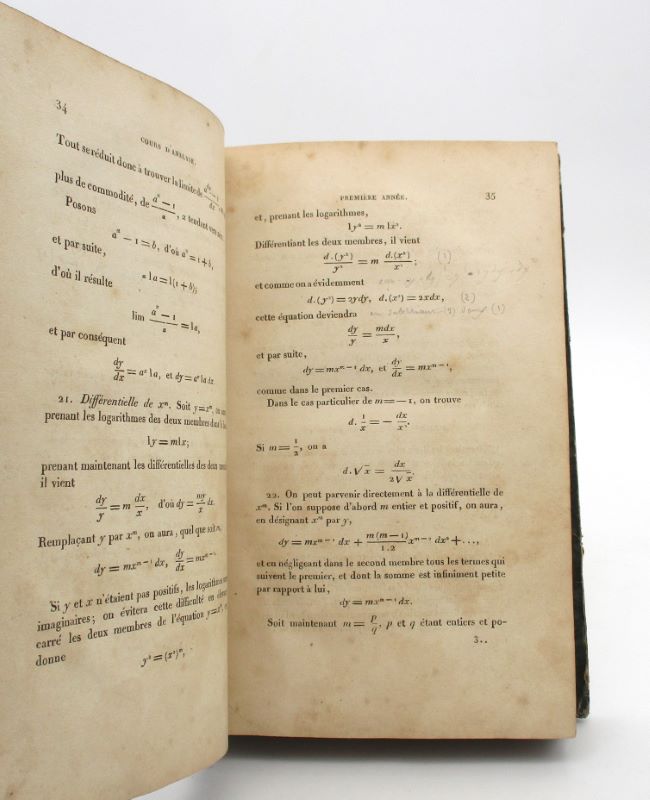 34
COURS D'ANALYSE.
Tout se réduit donc à trouver la limite de
plus de commodité, de a^z − 1 / z, z tendant vers
Posons
a^z − 1 = b, d'où a^z = 1 + b,
et par suite,
z la = l(1 + b);
d'où il résulte
lim a^z − 1 / z = la,
et par conséquent
dy/dx = a^x la, et dy = a^x la dx
21. Différentielle de x^m. Soit y = x^m, on
prenant les logarithmes des deux membres
ly = mlx;
prenant maintenant les différentielles des deux
il vient
dy/y = m dx/x, d'où dy = my/x dx.
Remplaçant y par x^m, on aura, quel que soit
dy = mx^{m−1} dx, dy/dx = mx^{m−1}
Si y et x n'étaient pas positifs, les logarithmes
imaginaires; on évitera cette difficulté en
carré les deux membres de l'équation y = x^m,
donne
y² = (x²)^m,
PREMIÈRE ANNÉE.
35
et, prenant les logarithmes,
ly² = m lx².
Différentiant les deux membres, il vient
d.(y²)/y² = m d.(x²)/x²; (1)
et comme on a évidemment
d.(y²) = 2ydy, d.(x²) = 2xdx, (2)
cette équation deviendra
dy/y = mdx/x,
et par suite,
dy = mx^{m−1} dx, et dy/dx = mx^{m−1},
comme dans le premier cas.
Dans le cas particulier de m = − 1, on trouve
d. 1/x = − dx/x².
Si m = 1/2, on a
d.√x = dx/2√x.
22. On peut parvenir directement à la différentielle de
x^m. Si l'on suppose d'abord m entier et positif, on aura,
en désignant x^m par y,
dy = mx^{m−1} dx + m(m−1)/1.2 x^{m−2} dx² + ...,
et en négligeant dans le second membre tous les termes qui
suivent le premier, et dont la somme est infiniment petite
par rapport à lui,
dy = mx^{m−1} dx.
Soit maintenant m = p/q, p et q étant entiers et po-
3..